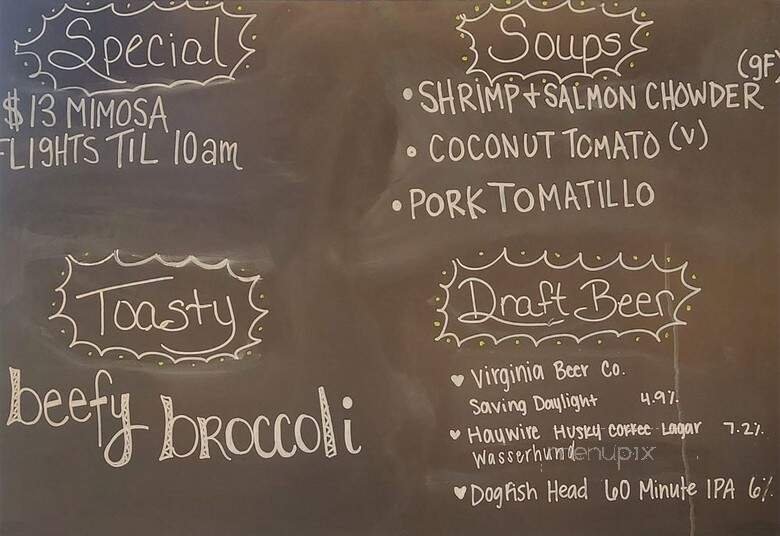 Special
$13 MIMOSA
FLIGHTS TIL 10am
Soups
(gF)
• SHRIMP + SALMON CHOWDER
• COCONUT TOMATO (V)
• PORK TOMATILLO
Toasty
beefy broccoli
Draft Beer
♥ Virginia Beer Co.
Saving Daylight 4.9%
♥ Haywire Husky Coffee Lagar 7.2%
Wasserhund
♥ Dogfish Head 60 Minute IPA 6%
menupix